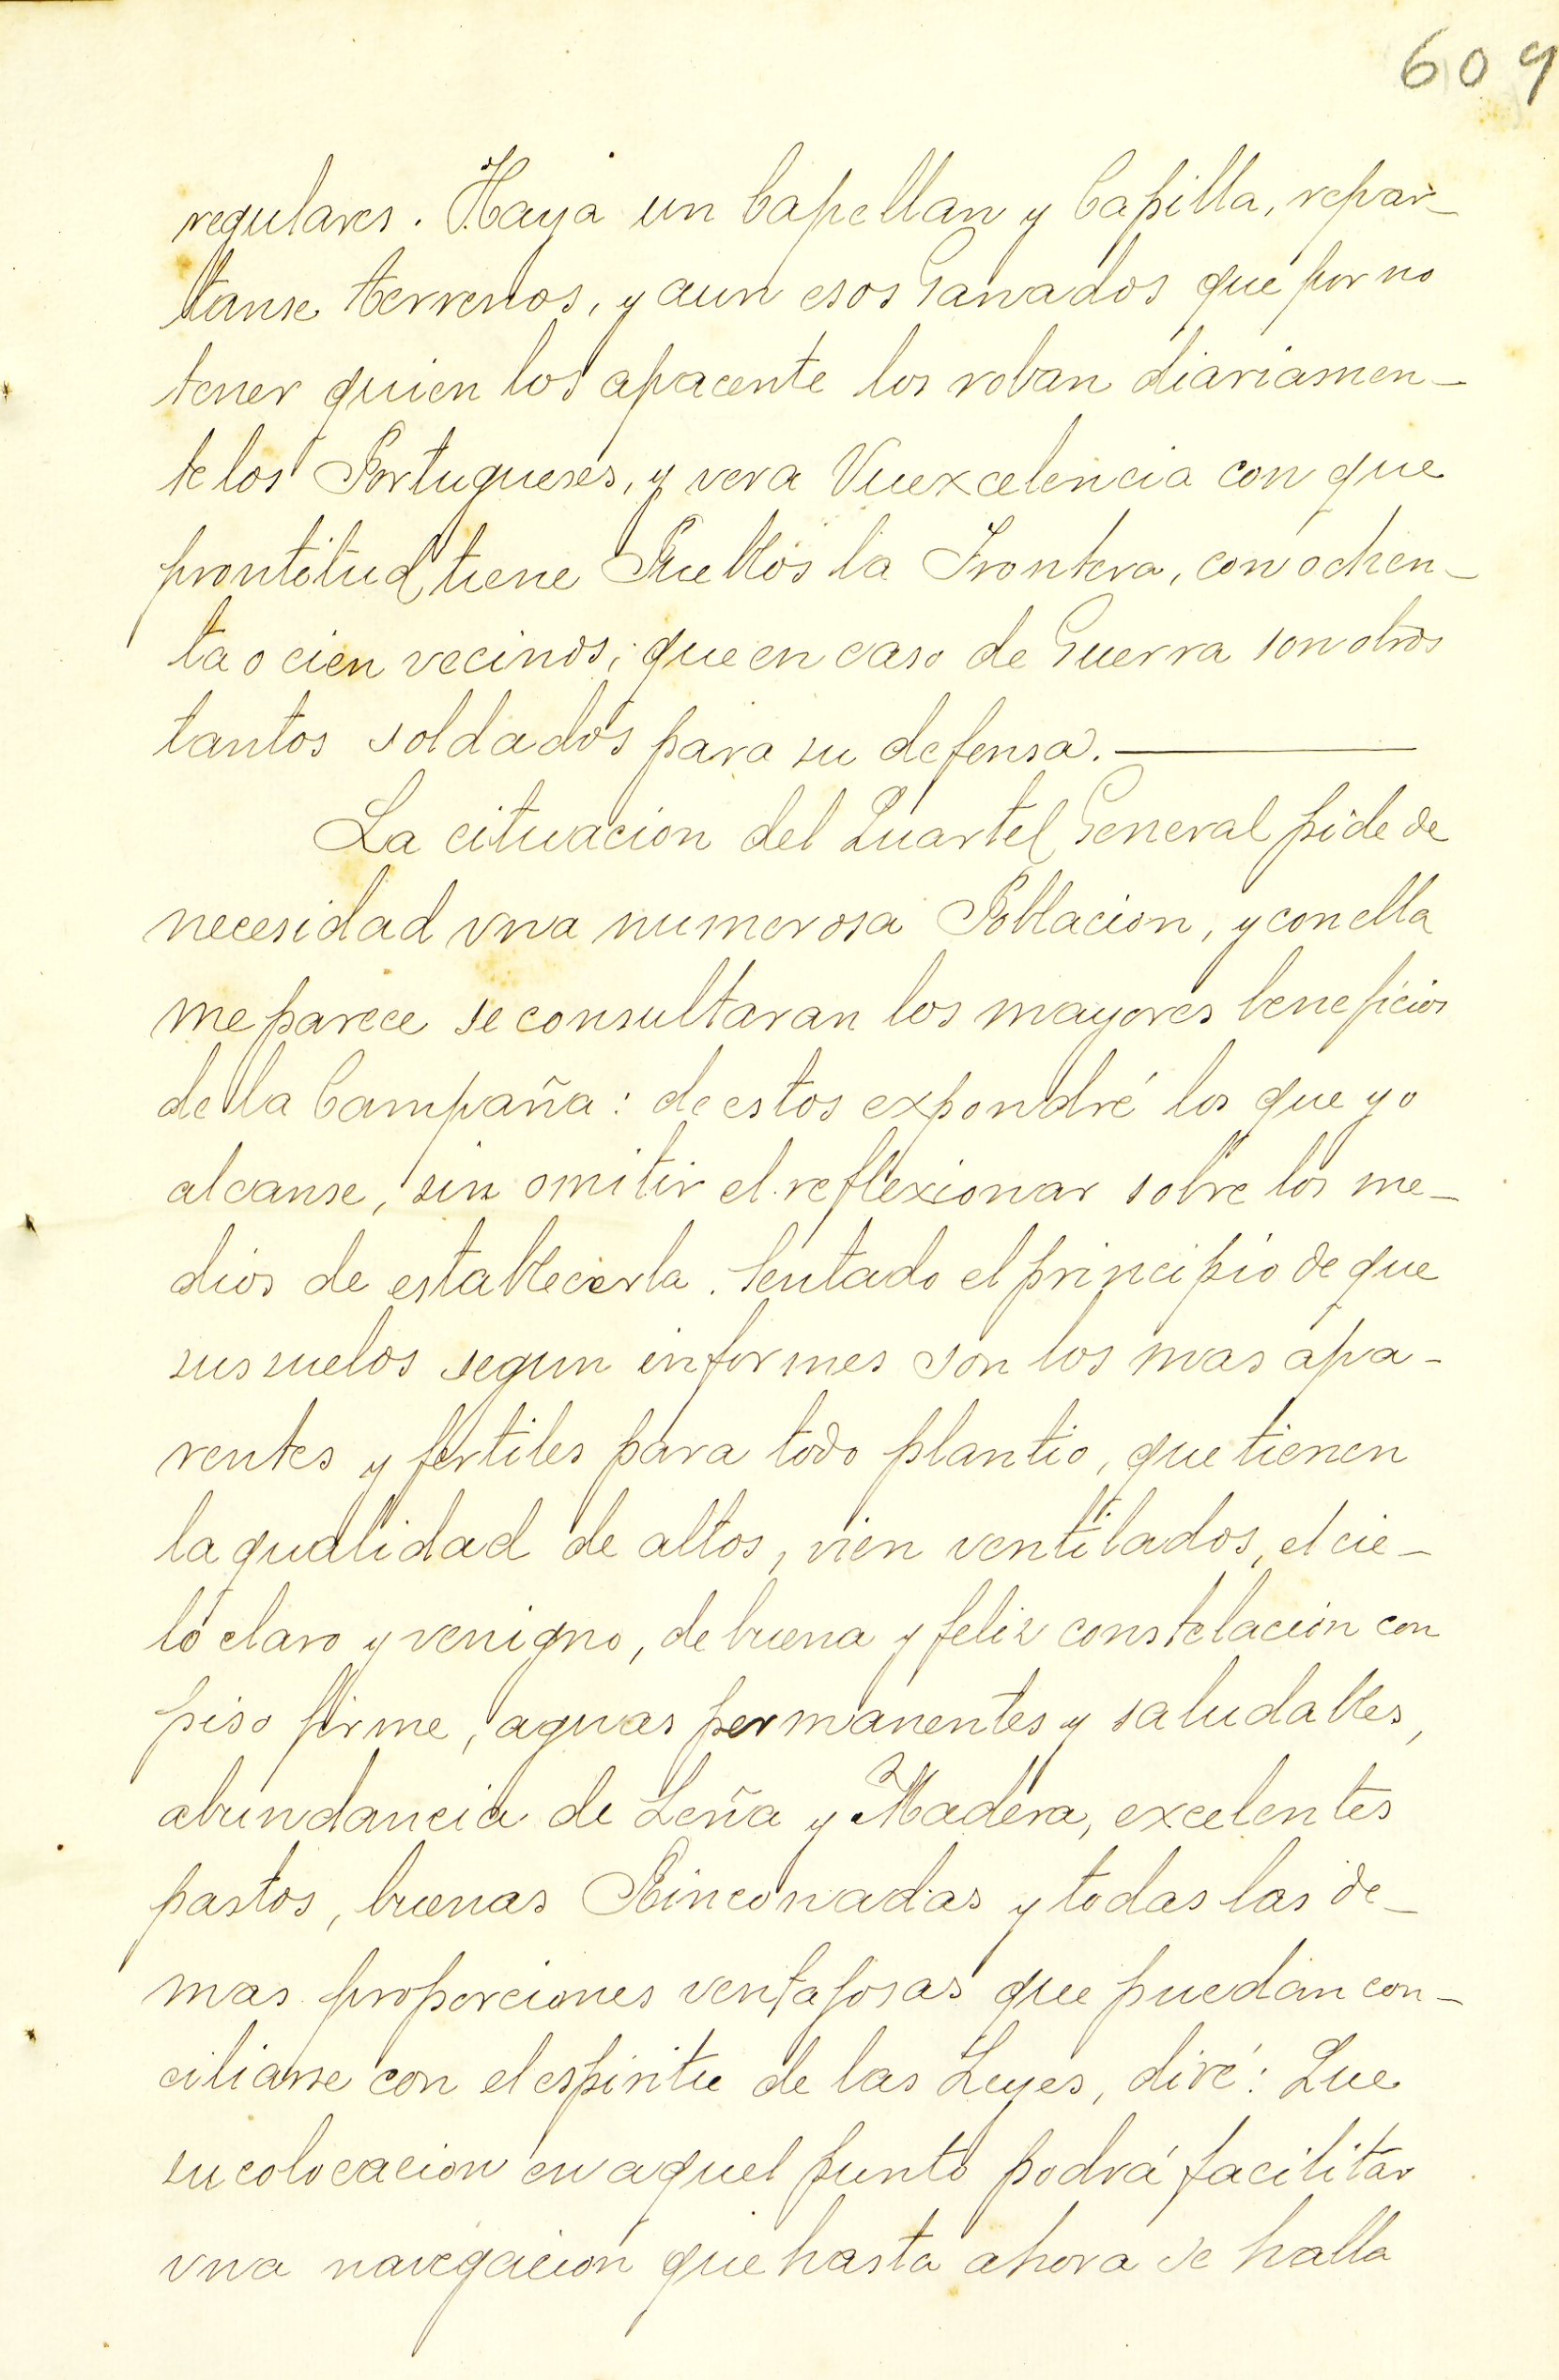 609
regulares. Haya un Capellan y Capilla, repar-
tanse terrenos, y aun esos Ganados que por no
tener quien los apacente los roban diariamen-
te los Portugueses, y vera Vuexcelencia con que
prontitud tiene Pueblos la Frontera, con ochen-
ta o cien vecinos; que en caso de Guerra son otros
tantos soldados para su defensa.
La cituacion del Quartel General pide de
necesidad vna numerosa Poblacion, y con ella
me parece se consultaran los mayores beneficios
de la Campaña: de estos expondré los que yo
alcanse, sin omitir el reflexionar sobre los me-
dios de establecerla. Sentado el principio de que
sus suelos segun informes son los mas apa-
rentes y fertiles para todo plantio, que tienen
la qualidad de altos, vien ventilados, el cie-
lo claro y venigno, de buena y feliz constelacion con
piso firme, aguas permanentes y saludables,
abundancia de Leña y Madera, excelentes
pastos, buenas Rinconadas y todas las de-
mas proporciones ventajosas que puedan con-
ciliarse con el espiritu de las Leyes, diré: Que
su colocacion en aquel punto podrá facilitar
vna navegacion que hasta ahora se halla